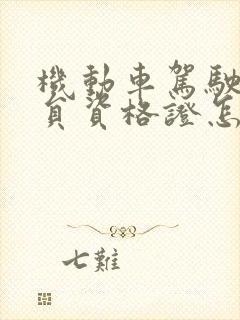 機動車駕駛
員資格證怎
七難